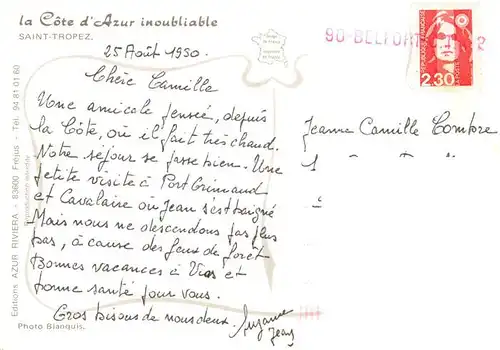 la Côte d'Azur inoubliable
SAINT-TROPEZ.
25 Août 1990.
Chère Camille
Une amicale pensée, depuis
la Côte, où il fait très chaud.
Notre séjour se passe bien. Une
petite visite à Port Grimaud
et Cavalaire où Jean s'est baigné
Mais nous ne descendons pas plus
bas, à cause des feux de forêt
Bonnes vacances à Vias et
bonne santé pour vous.
Gros bisous de nous deux. Suzanne
Jean
Photo Bianquis.
Editions AZUR RIVIERA - 83600 Fréjus - Tél. 94 81 01 60
Reproduction interdite
90-BELFORT
REPUBLIQUE FRANÇAISE
2,30
LA POSTE
Jeanne Camille